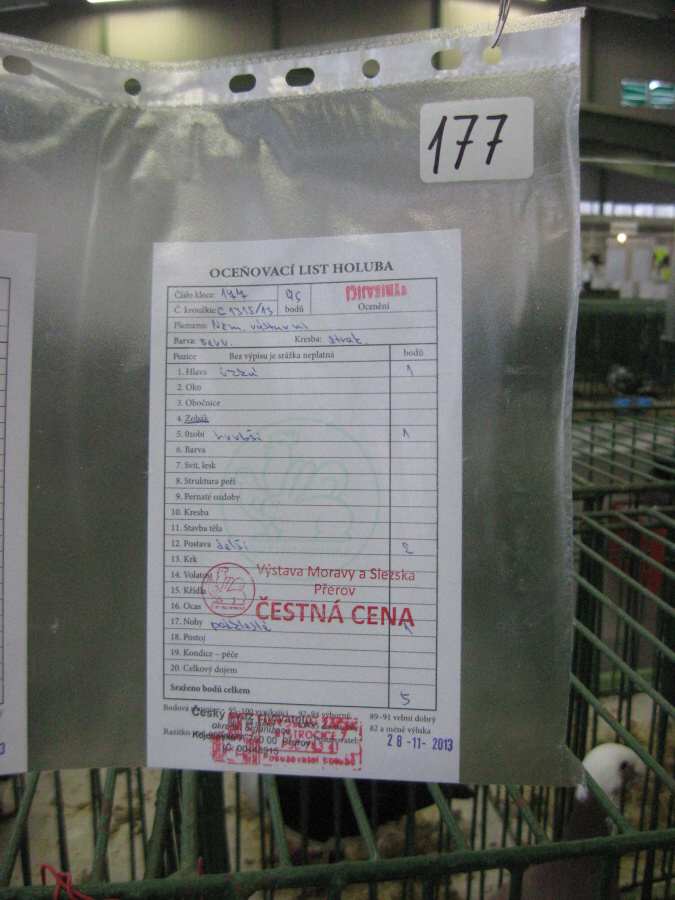 177
OCEŇOVACÍ LIST HOLUBA
Číslo klece: 177 95 VYNIKAJÍCÍ
Č. kroužku: C 1315/13 bodů Ocenění
Plemeno: Něm. výstavní
Barva: Kresba:
Pozice Bez výpisu je srážka neplatná bodů
1. Hlava 1
2. Oko
3. Obočnice
4. Zobák
5. Ozobí hrubší 1
6. Barva
7. Svit, lesk
8. Struktura peří
9. Pernaté ozdoby
10. Kresba
11. Stavba těla
12. Postava delší 2
13. Krk
14. Volatost
15. Křídla
16. Ocas
17. Nohy 1
18. Postoj
19. Kondice – péče
20. Celkový dojem
Sraženo bodů celkem 5
Výstava Moravy a Slezska
Přerov
ČESTNÁ CENA
Bodová 95-100 vynikající 92-93 výborný 89-91 velmi dobrý
82 a méně výluka
Český svaz chovatelů
Přerov
28 -11- 2013